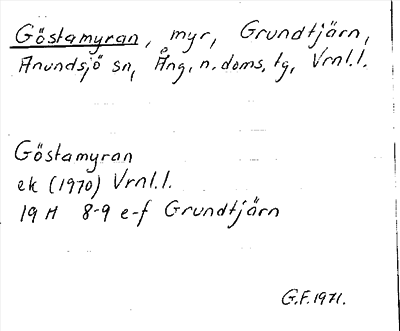 Göstamyran, myr, Grundtjärn,
Anundsjö sn, Ång. n. doms. tg, Vrnl.l.
Göstamyran
ek (1970) Vrnl.l.
19 H 8-9 e-f Grundtjärn
G.F. 1971.